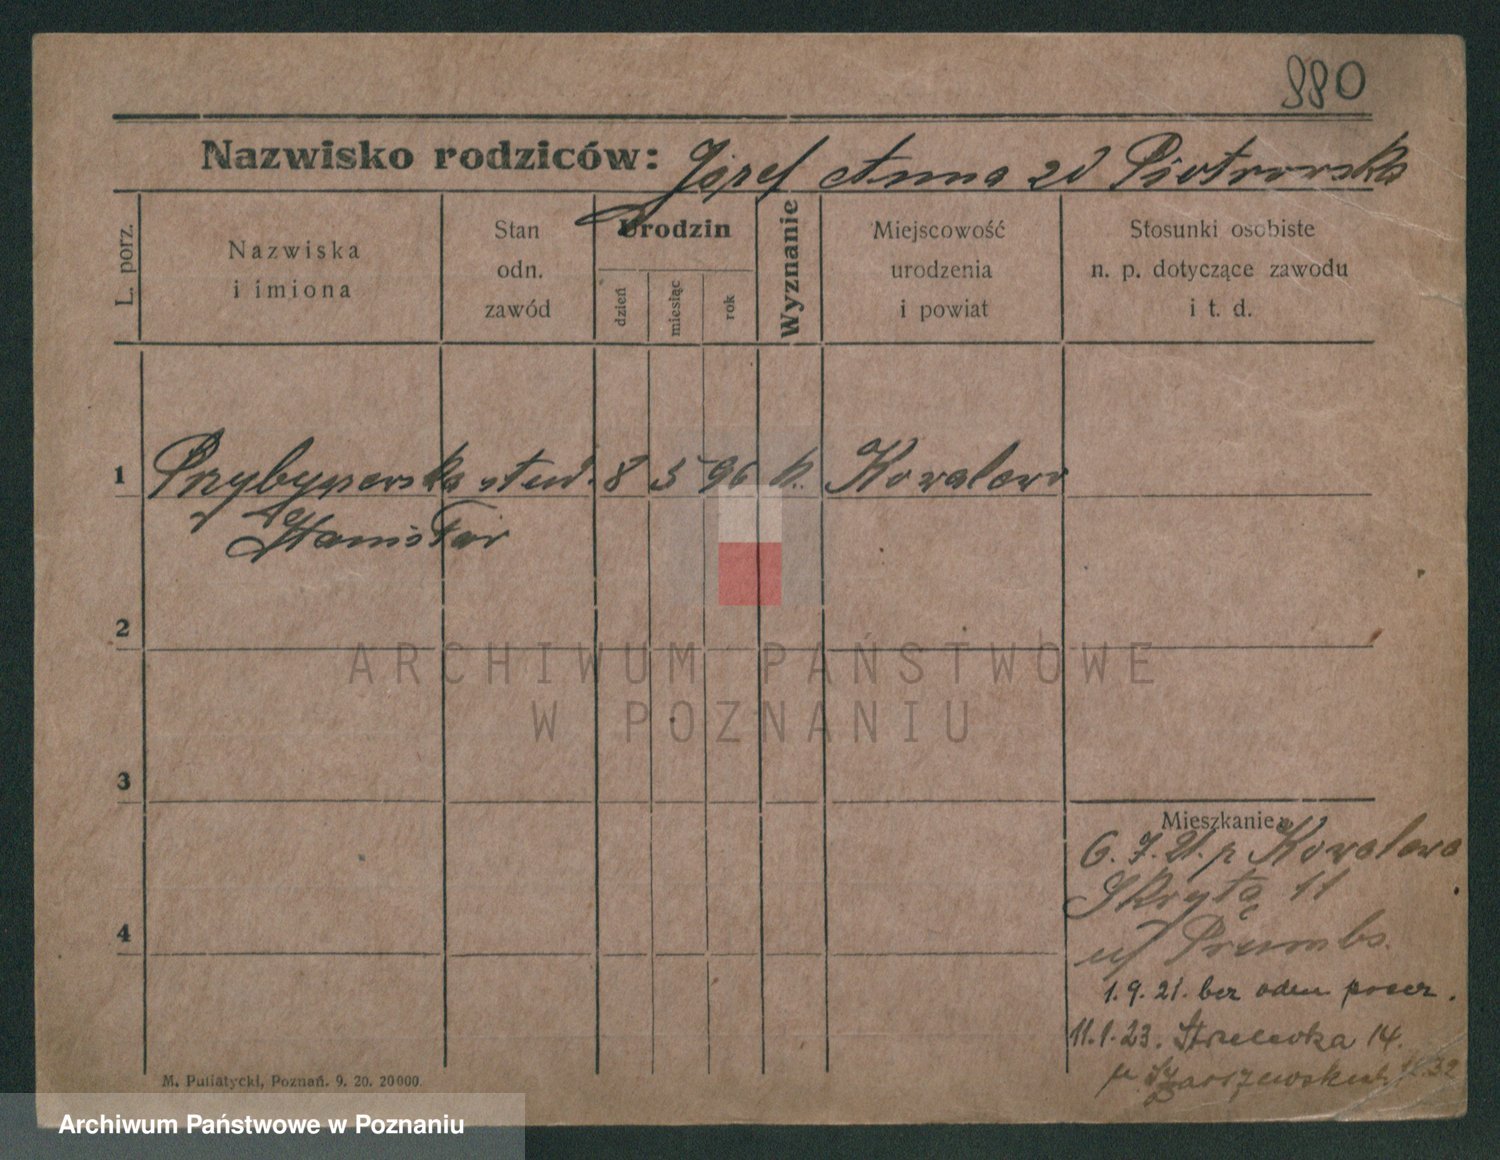 990
Nazwisko rodziców: Józef Anna zd Piotrowska
L. porz.
Nazwiska
i imiona
Stan
odn.
zawód
Urodzin
dzień
miesiąc
rok
Wyznanie
Miejscowość
urodzenia
i powiat
Stosunki osobiste
n. p. dotyczące zawodu
i t. d.
1 stud. 8 5 96 k. Kowalewo
Stanisław
2
ARCHIWUM PAŃSTWOWE
W POZNANIU
3
Mieszkanie:
6. 7. 21. p Kowalewo
Skryta 11
4
1. 9. 21. bez
11. 1. 23. Strzelecka 14.
M. Putiatycki, Poznań. 9. 20. 20000.
Archiwum Państwowe w Poznaniu